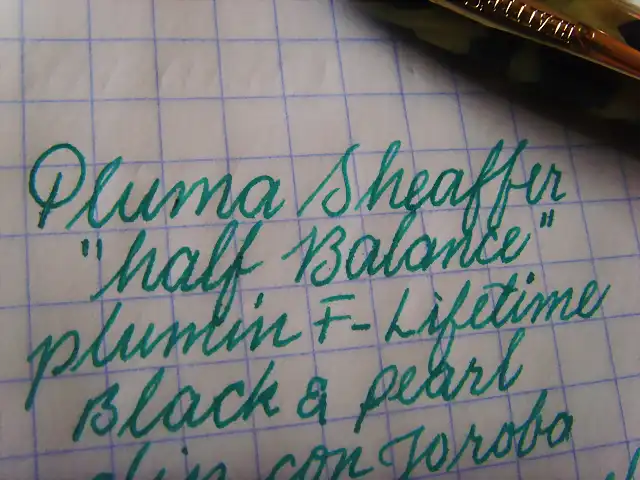 Pluma Sheaffer
"half Balance"
plumin F-Lifetime
Black & pearl
clip con Joroba